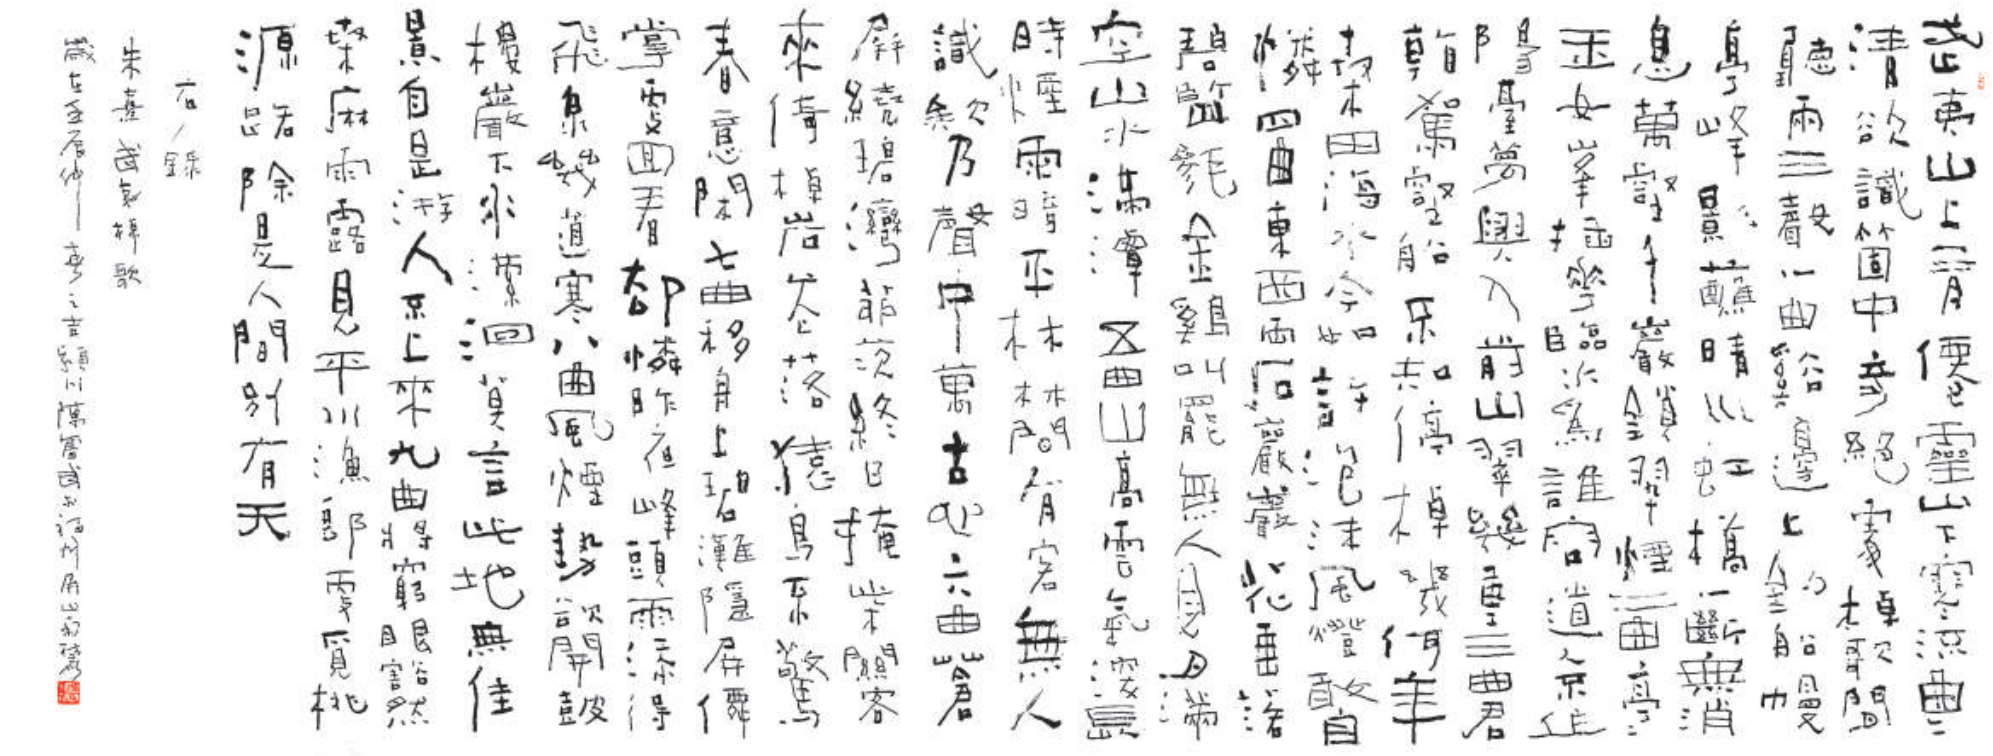 武夷山上有僊靈山下寒流曲〻
清欲識箇中奇絕處棹歌閒
聽兩三聲一曲谿邊上釣船幔
亭峰影蘸晴川虹橋一斷無消
息萬壑千巖鎖翠煙二曲亭〻
玉女峰插花臨水為誰容道人不作
陽臺夢興入前山翠幾重三曲君
看架壑船不知停棹幾何年
桑田海水今如許泡沫風燈敢自
憐四曲東西兩石巖巖花垂露
碧毿金雞叫罷無人見月滿
空山水滿潭五曲山高雲氣深長
時煙雨暗平林林間有客無人
識欸乃聲中萬古心六曲蒼
屏繞碧灣茆茨終日掩柴關客
來倚棹岩花落猿鳥不驚
春意閑七曲移舟上碧灘隱屏僊
掌更回看卻憐昨夜峰頭雨添得
飛泉幾道寒八曲風煙勢欲開鼓
樓巖下水瀠洄莫言此地無佳
景自是游人不上來九曲將窮眼豁然
桑麻雨露見平川漁郎更覓桃
源路除是人間別有天
右錄
朱熹武夷棹歌
歲在壬辰仲春之吉潁川陳於福州屏山